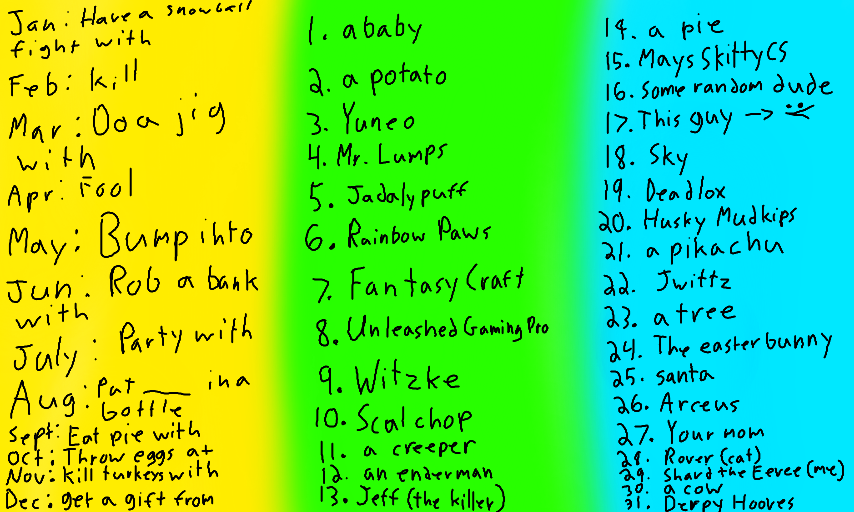 Jan: Have a snowball
fight with
Feb: kill
Mar: Do a jig
with
Apr: Fool
May: Bump into
Jun: Rob a bank
with
July: Party with
Aug: Put ___ in a
bottle
Sept: Eat pie with
Oct: Throw eggs at
Nov: kill turkeys with
Dec: get a gift from
1. a baby
2. a potato
3. Yuneo
4. Mr. Lumps
5. Jadalypuff
6. Rainbow Paws
7. FantasyCraft
8. UnleashedGamingPro
9. Witzke
10. Scalchop
11. a creeper
12. an enderman
13. Jeff (the killer)
14. a pie
15. MaysSkittyCS
16. some random dude
17. This guy →
18. Sky
19. Deadlox
20. Husky Mudkips
21. a pikachu
22. Jwittz
23. a tree
24. The easter bunny
25. santa
26. Arceus
27. Your mom
28. Rover (cat)
29. Shard the Eevee (me)
30. a cow
31. Derpy Hooves